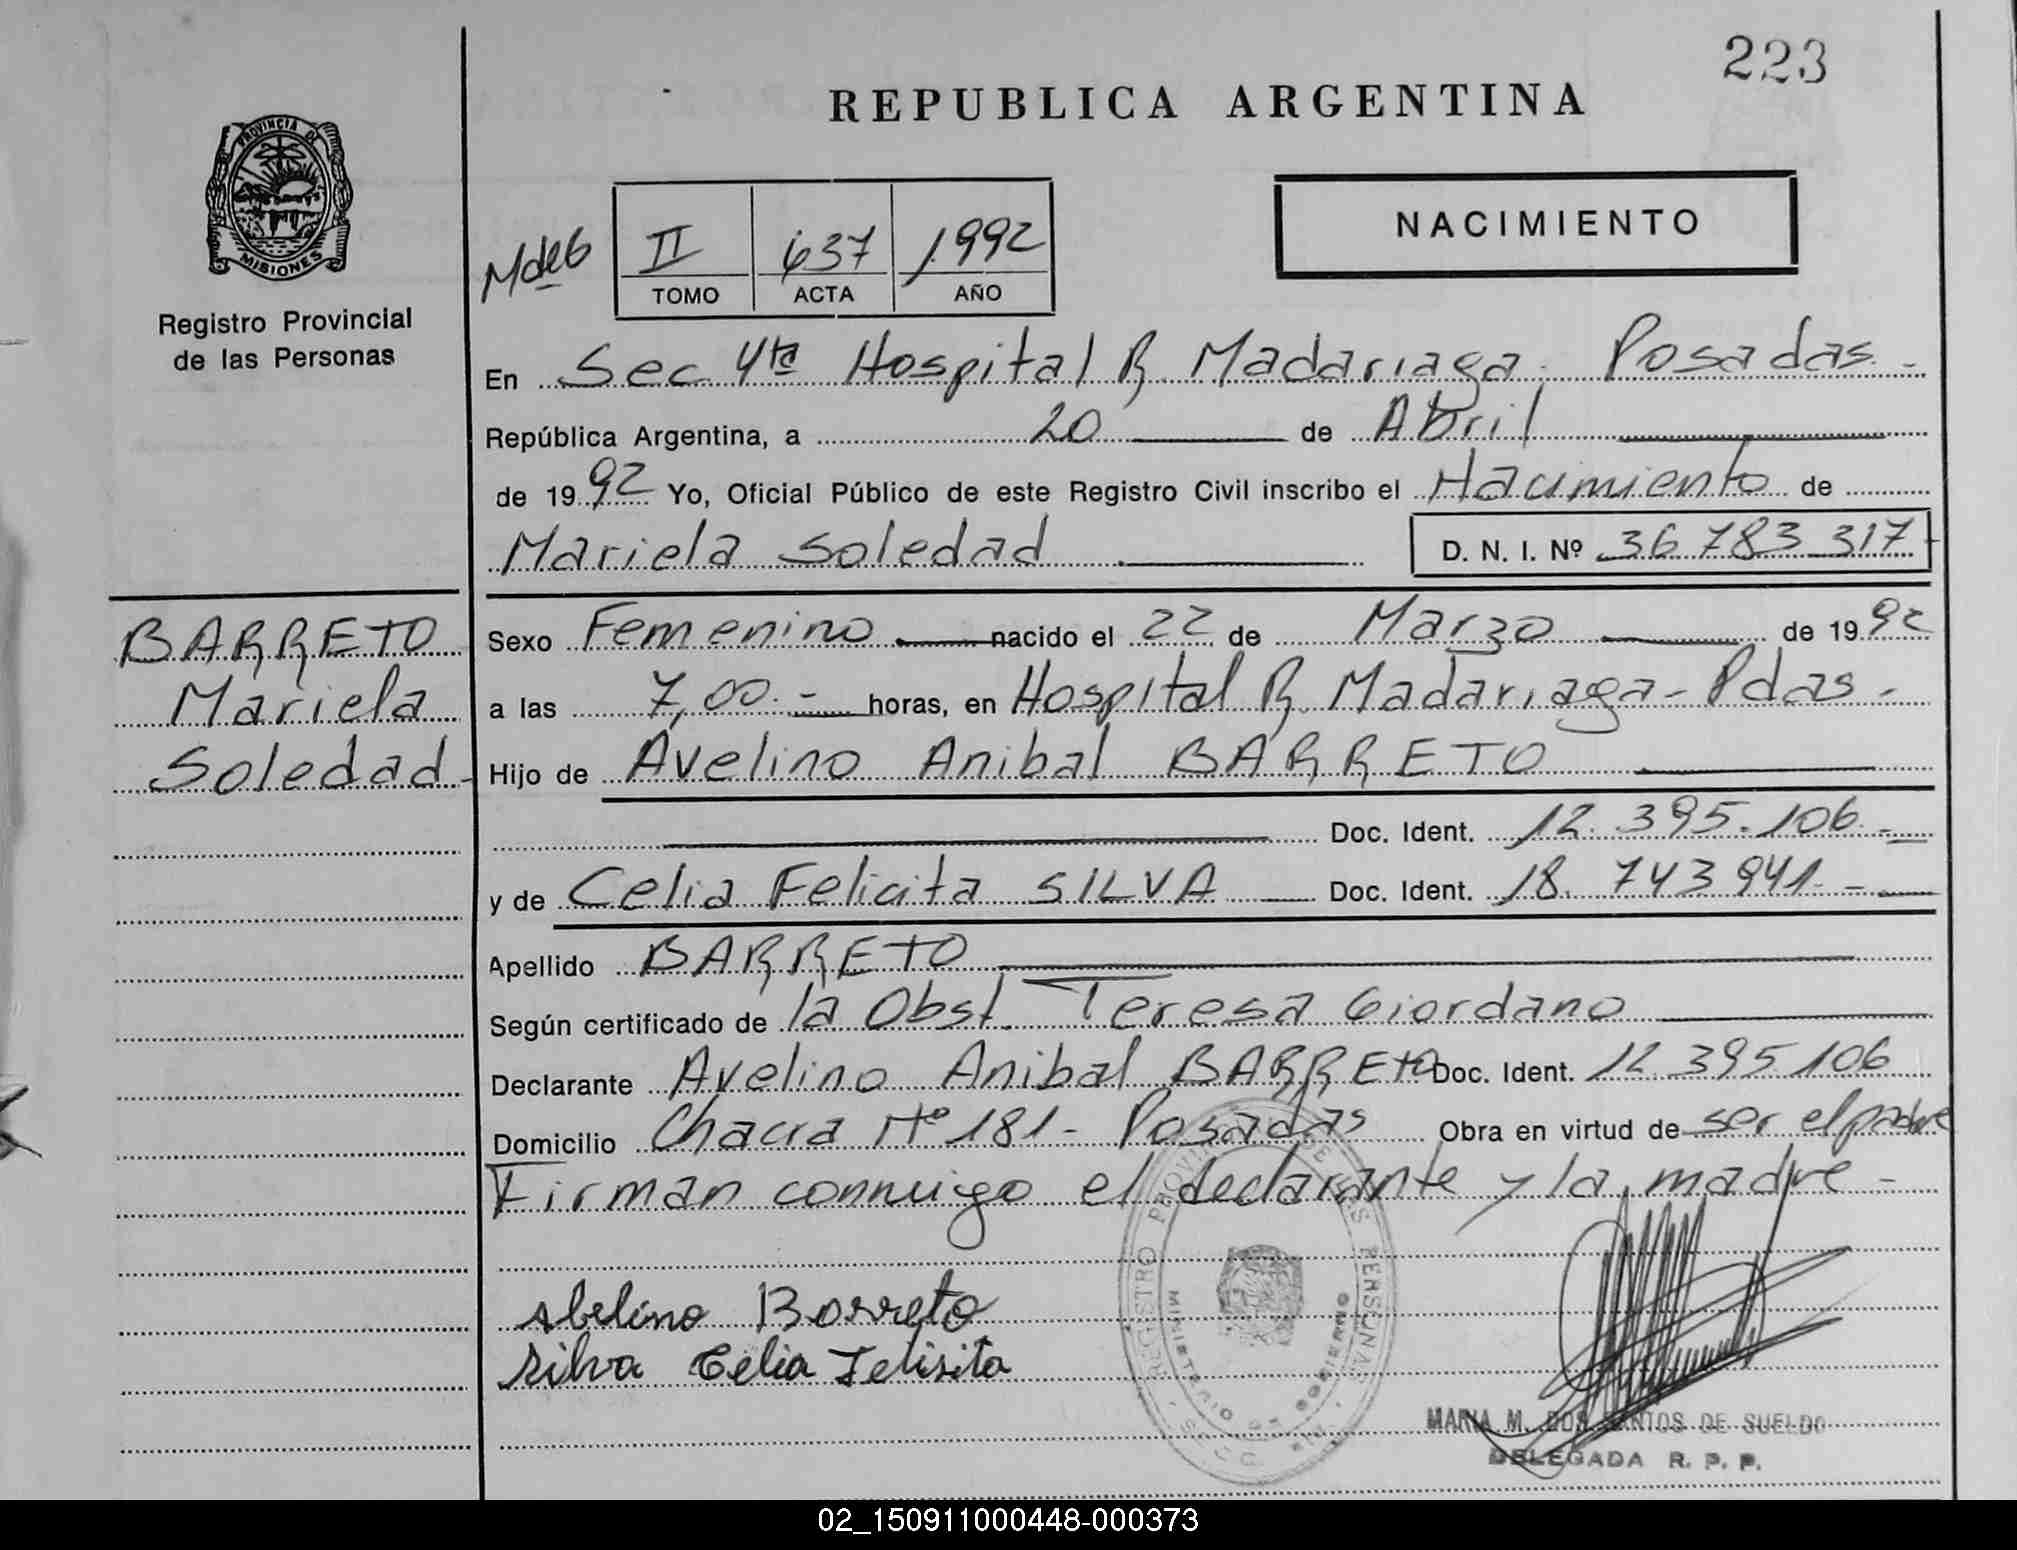 223
REPUBLICA ARGENTINA
PROVINCIA DE
MISIONES
Registro Provincial
de las Personas
NACIMIENTO
II 637 1992
TOMO ACTA AÑO
En Sec 4ta Hospital R. Madariaga. Posadas.-
República Argentina, a 20 de Abril
de 1992 Yo, Oficial Público de este Registro Civil inscribo el Nacimiento de
Mariela Soledad D. N. I. Nº 36 783 317-
BARRETO
Mariela
Soledad-
Sexo Femenino nacido el 22 de Marzo de 1992
a las 7,00.- horas, en Hospital R. Madariaga- Pdas-
Hijo de Avelino Anibal BARRETO
Doc. Ident. 12.395.106.-
y de Celia Felicita SILVA Doc. Ident. 18.743 941.-
Apellido BARRETO
Según certificado de la Obst. Teresa Giordano
Declarante Avelino Anibal BARRETO Doc. Ident. 12 395 106
Domicilio Chacra Nº 181- Posadas Obra en virtud de ser el padre
Firman conmigo el declarante y la madre-
Abelino Borreto
Silva Celia Felisita
REGISTRO PROVINCIAL DE LAS PERSONAS
MINISTERIO DE GOBIERNO
MARIA M. DOS SANTOS DE SUELDO
DELEGADA R. P. P.
02_150911000448-000373